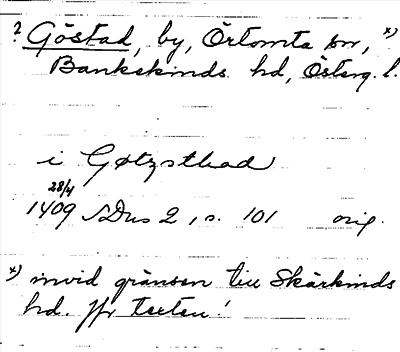 ? Göstad, by, Örtomta sn, x)
Bankekinds hd, Österg. l.
i Gøtzsthad
28/4
1409 SDns 2, s. 101 orig.
x) invid gränsen till Skärkinds
hd. Jfr texten!